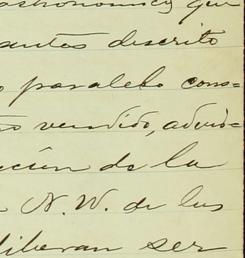 astronómico que
antes descrito
paralelo cons-
vendido, advir-
ción de la
N. W. de los
deliberan ser